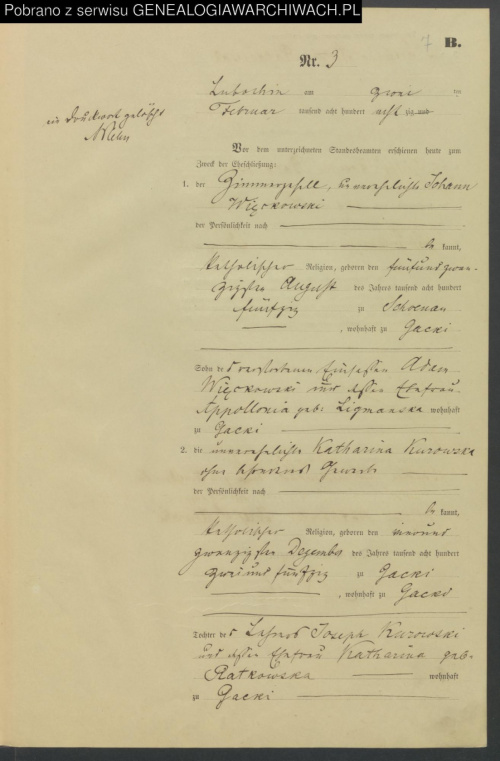 Pobrano z serwisu GENEALOGIAWARCHIWACH.PL
7 B.
Nr. 3
Lubochin am zwei ten
Februar tausend acht hundert acht
ein Druckwort gelöscht
Vor dem unterzeichneten Standesbeamten erschienen heute zum
Zweck der Eheschließung:
1. der Zimmergesell, unverehelichte Johann
Więckowski
der Persönlichkeit nach
be kannt,
katholischer Religion, geboren den fünfundzwan-
zigsten August des Jahres tausend acht hundert
fünfzig zu Schoenau
, wohnhaft zu Gacki
Sohn des verstorbenen Einsassen Adam
Więckowski und dessen Ehefrau
Appollonia geb. Ligmanska wohnhaft
zu Gacki
2. die unverehelichte Katharina Kurowska
ohne besonderes Gewerbe
der Persönlichkeit nach
be kannt,
katholischer Religion, geboren den vierund
zwanzigsten Dezember des Jahres tausend acht hundert
zwei und fünfzig zu Gacki
, wohnhaft zu Gacki
Tochter des Lehrers Joseph Kurowski
und dessen Ehefrau Katharina geb.
Ratkowska wohnhaft
zu Gacki